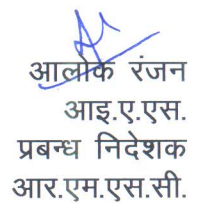 आलोक रंजन
आइ.ए.एस.
प्रबन्ध निदेशक
आर.एम.एस.सी.